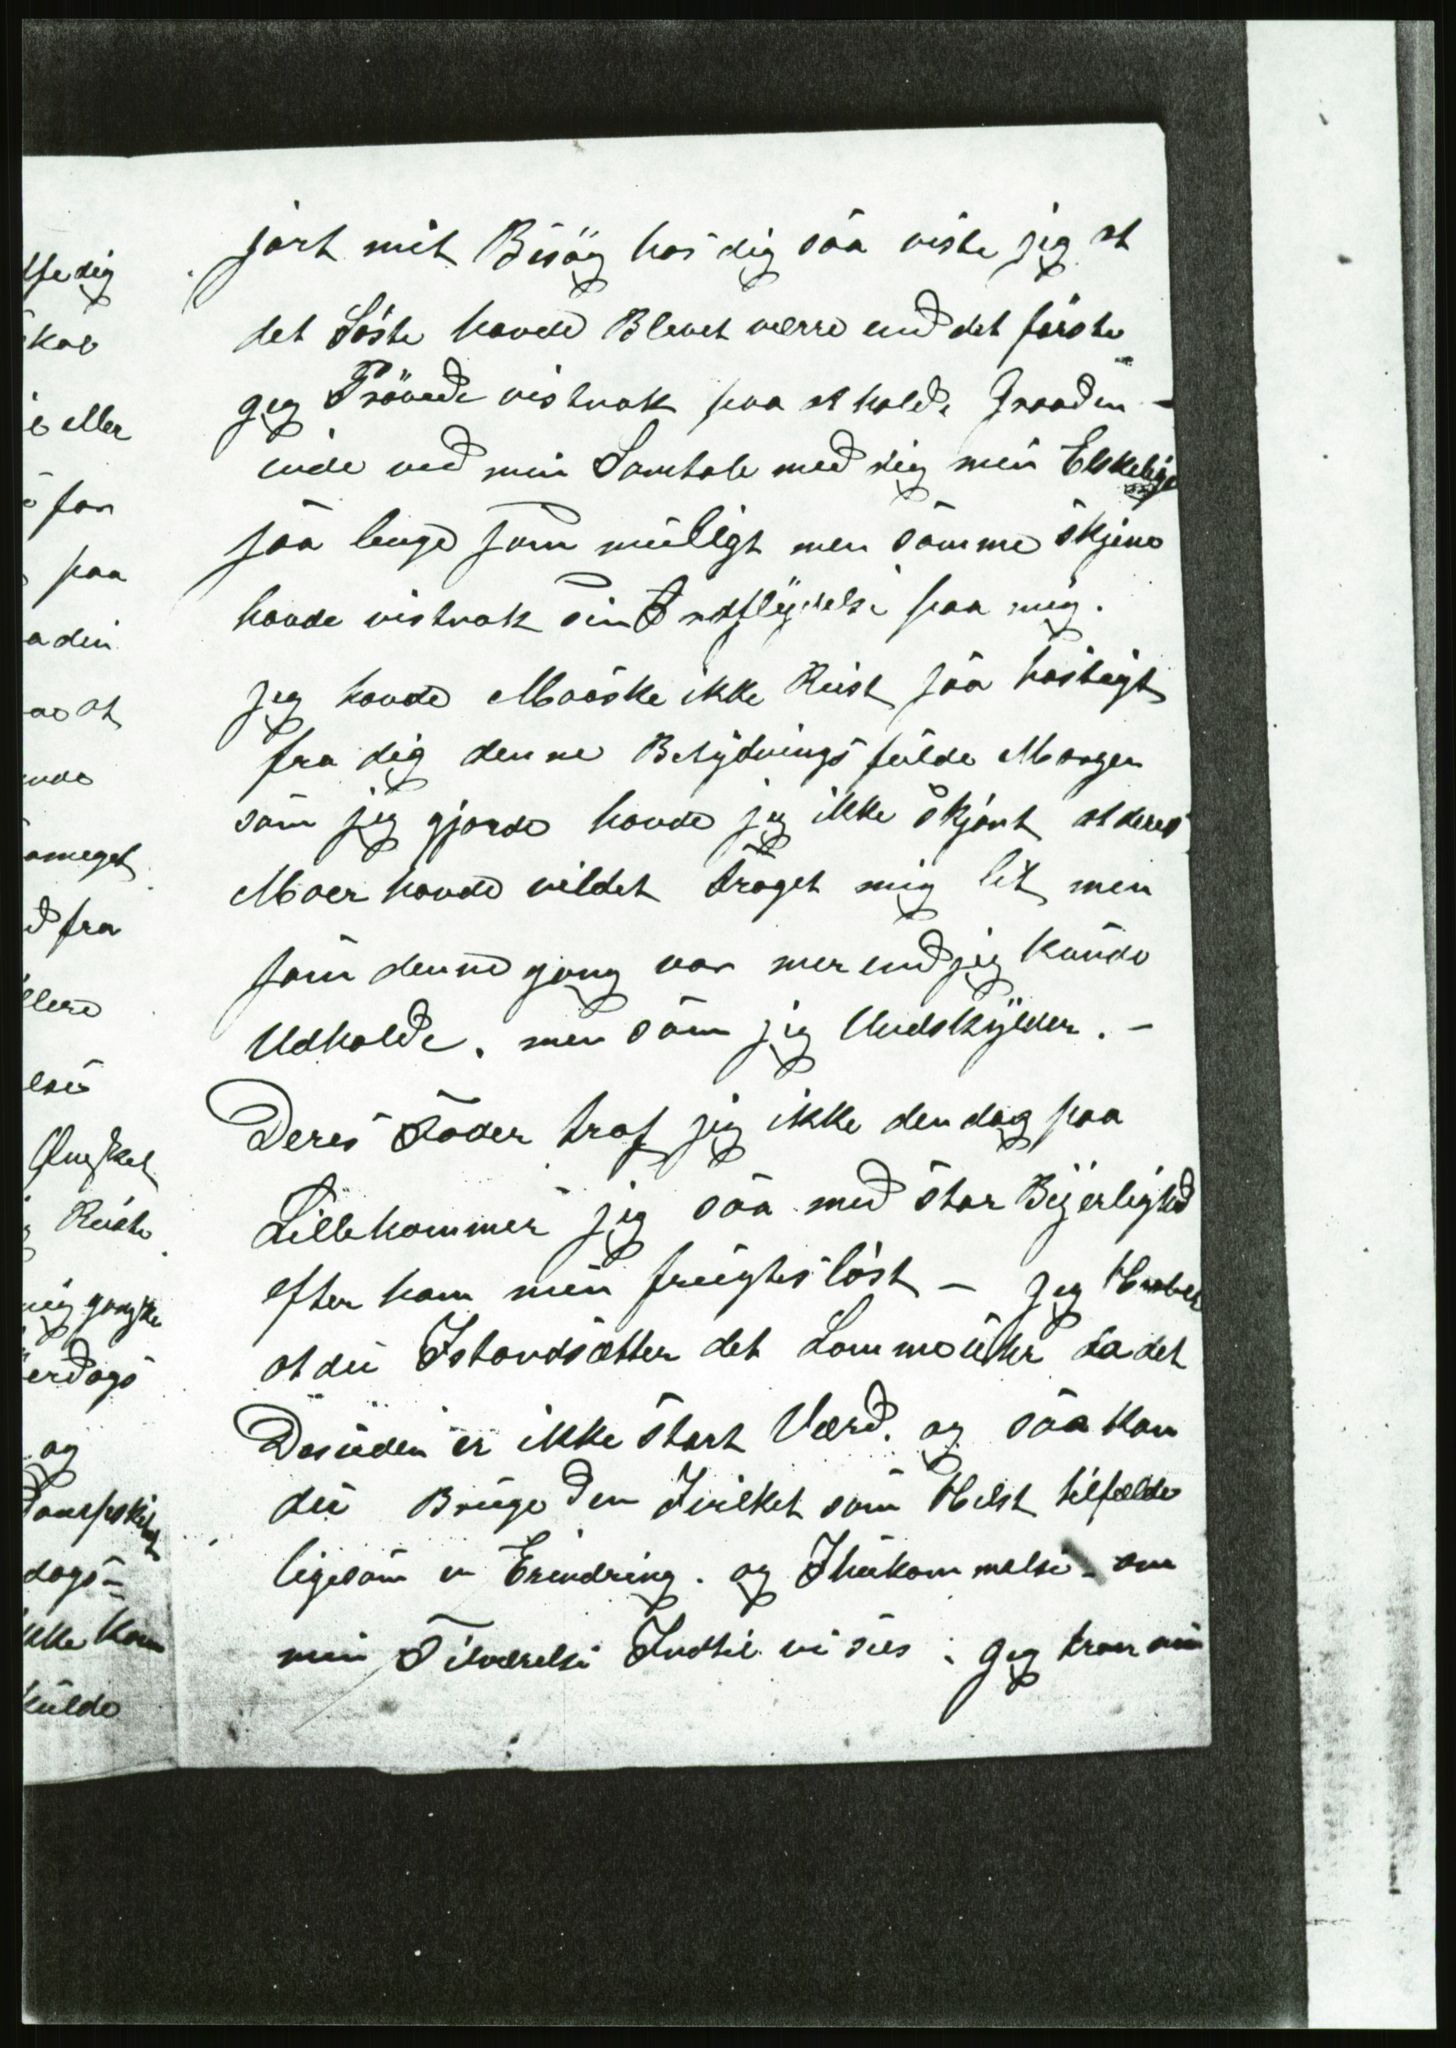 lse dig
skab
i eller
for
paa
a din
at
ameget
d fra
llere
else
Ønsket
Reiste
mig ganske
erdags
og
dags-
ikke kom
kulde
jort mit Besög hos dig såa viste jeg at
det Siste havde Blevet værre end det förste
jeg Prövede vistnok paa at holde Graaden -
inde ved min Samtale med dig min Elskelige
såa lenge som muligt men samme skjene
havde vistnok sin Indflydelse paa mig.
jeg havde Maaske ikke Reist såa hastigt
fra dig denne Betydnings fulde Morgen
som jeg gjorde havde jeg ikke skjönt at deres
Moer havde vildet traget mig lit men
som denne gang var mer end jeg kunde
Udholde. men som jeg Undskylder. -
Deres Fader traf jeg ikke den dag paa
Lillehammer jeg såa med stor Bejerlighed
efter ham men frugtislöst - jeg Haaber
at du Istandsætter det Lommeuhr da det
Desuden er ikke stort Værd. og såa kan
du Bruge den I vilket som Helst tilfælde
ligesom en Erindring. og Ihukommelse - om
min Tilværelse Indtil vi sees. jeg tror min